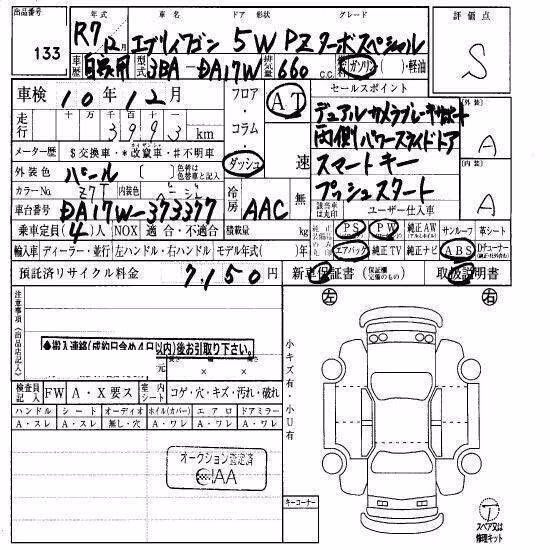 出品番号 年式 車名 ドア 形状 グレード 評価点
133 R7 12月 エブリィワゴン 5W PZターボスペシャル S
車歴 自家用 型式 3BA-DA17W 排気量 660 c.c. 燃料 ガソリン ( )・軽油
車検 10年12月 フロア・コラム・ダッシュ AT 速 セールスポイント
走行 十 万 千 百 十
3993 km
デュアルカメラブレーキサポート
両側パワースライドドア
スマートキー
プッシュスタート
外装 A
内装 A
メーター歴 $交換車・*改竄車・#不明車
外装色 パール [ 色] 色替は色替車と記入
カラーNo. Z7T 内装色 ベージュ 冷房 AAC 無 該当車は丸印 ユーザー仕入車
車台番号 DA17W-373377
乗車定員 (4)人 NOX 適合・不適合 積載量 kg PS PW 純正AW (アルミホイル) サンルーフ 革シート
輸入車 ディーラー・並行 左ハンドル・右ハンドル モデル年式( )年 エアバック 純正TV 純正ナビ ABS
預託済リサイクル料金 7,150円 新車保証書 取扱説明書
注意事項(出品店記入)
左 右
◆搬入連絡(成約日含め4日以内)後お引取り下さい。
長さ cm 幅 cm 高さ cm
小キズ有・小U有
検査員記入 FW A・X要ス 室内シート コゲ・穴・キズ・汚れ・破れ
ハンドル シート オーディオ ホイル(カバー) エアロ ドアミラー
A・スレ A・スレ 無し・穴 A・ワレ A・ワレ A・ワレ
オークション査定済
JAA
キーコーナー
T
スペア又は
修理キット